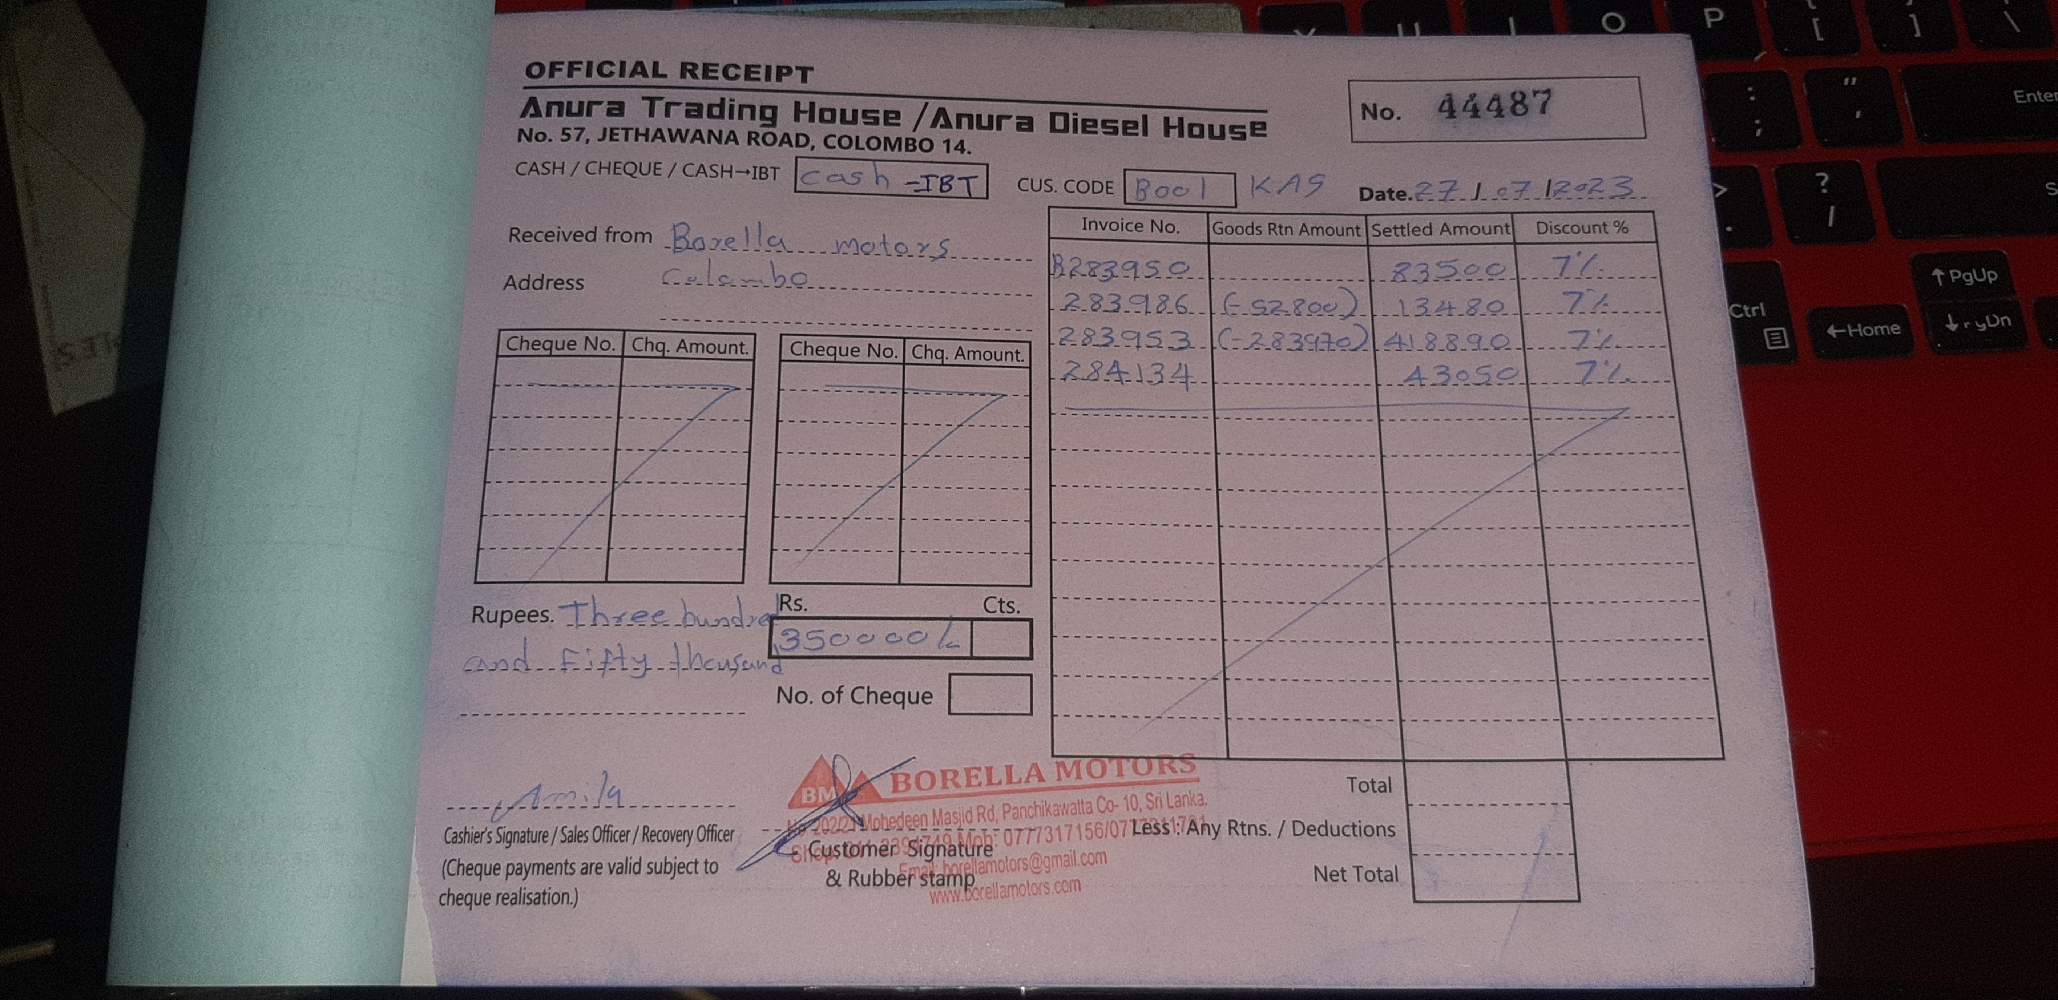 OFFICIAL RECEIPT
Anura Trading House / Anura Diesel House
No. 57, JETHAWANA ROAD, COLOMBO 14.
No. 44487
CASH / CHEQUE / CASH→IBT cash -IBT CUS. CODE B001 KAS Date. 27/07/2023
Received from Borella motors
Address Colombo
Cheque No. Chq. Amount. Cheque No. Chq. Amount.
Invoice No. Goods Rtn Amount Settled Amount Discount %
B283950 83500 7%
283986 (-52800) 13480 7%
283953 (-283970) 418890 7%
284134 43050 7%
Rupees. Three hundred
and Fifty thousand
Rs. Cts.
350000/-
No. of Cheque
Amila
Cashier's Signature / Sales Officer / Recovery Officer
(Cheque payments are valid subject to
cheque realisation.)
BM BORELLA MOTORS
Mohedeen Masjid Rd, Panchikawatta Co- 10, Sri Lanka.
Mob: 0777317156/077
Email: borellamotors@gmail.com
www.borellamotors.com
Customer Signature
& Rubber stamp
Total
Less : Any Rtns. / Deductions
Net Total
O P [ ] \
: ; " , Enter
> . ? /
Ctrl ↑PgUp
←Home ↓